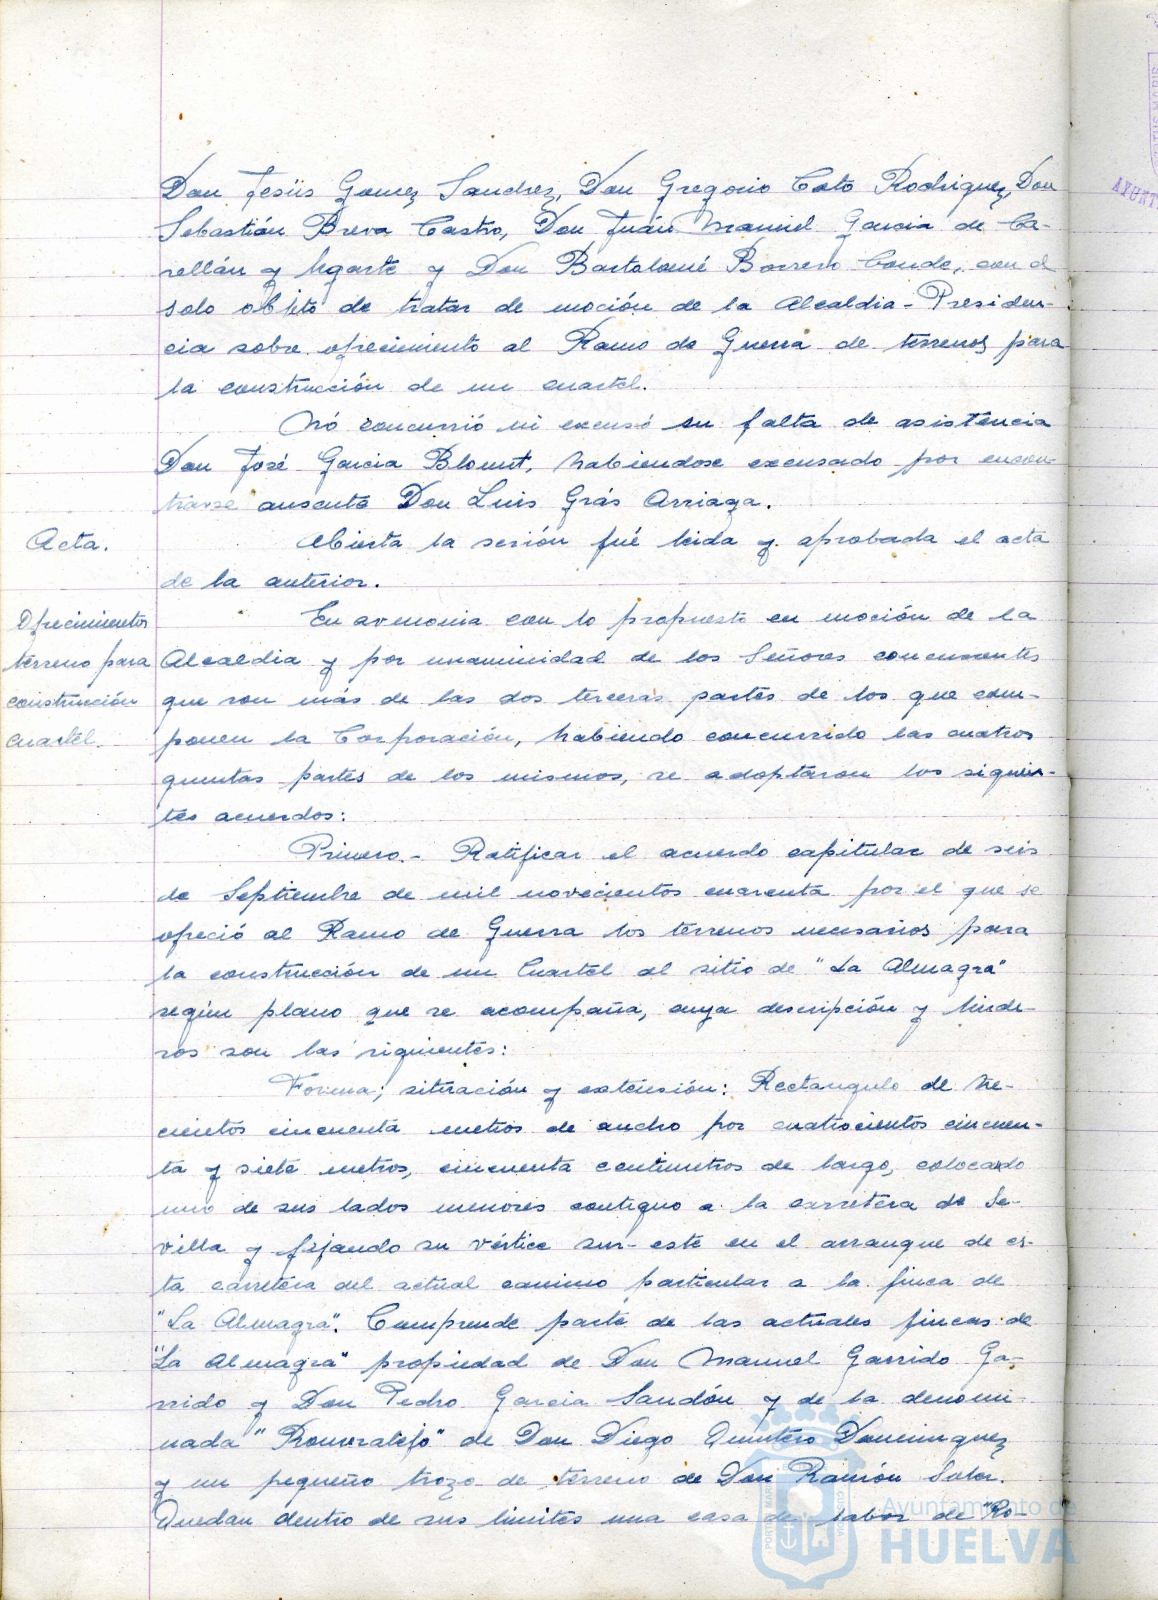 Don Jesús Gomez Sandrez, Don Gregorio Coto Rodriguez, Don
Sebastián Breva Castro, Don Juán Manuel Garcia de Ca-
rellán y Ugarte y Don Bartolomé Borrero Conde, con el
solo objeto de tratar de moción de la Alcaldia-Presiden-
cia sobre ofrecimiento al Ramo de Guerra de terrenos para
la construcción de un cuartel.
Nó concurrió ni excusó su falta de asistencia
Don José Garcia Blount, habiendose excusado por encon-
trarse ausente Don Luis Grás Arriaga.
Acta.
Abierta la sesión fué leida y aprobada el acta
de la anterior.
Ofrecimientos
terreno para
construcción
cuartel.
En avenonia con lo propuesto en moción de la
Alcaldia y por unaminidad de los Señores concurrentes
que son más de las dos terceras partes de los que com-
ponen la Corporación, habiendo concurrido las cuatros
quintas partes de los mismos, se adoptaron los siguien-
tes acuerdos:
Primero.- Ratificar el acuerdo capitular de seis
de Septiembre de mil novecientos cuarenta por el que se
ofreció al Ramo de Guerra los terrenos necesarios para
la construcción de un Cuartel al sitio de "La Almagra"
según plano que se acompaña, cuya descripción y linde-
ros son las siguientes:
Forma; situación y extensión: Rectangulo de tre-
cientos cincuenta metros de ancho por cuatrocientos cincuen-
ta y siete metros, cincuenta centimetros de largo, colocado
uno de sus lados menores contiguo a la carretera de Se-
villa y fijando su vértice sur-este en el arranque de es-
ta carretera del actual camino particular a la finca de
"La Almagra". Comprende parte de las actuales fincas de
"La Almagra" propiedad de Don Manuel Garrido Ga-
rrido y Don Pedro Garcia Sandón y de la denomi-
nada "Romeralejo" de Don Diego Quintero Dominguez
y un pequeño trozo de terreno de Don Ramón Soler.
Quedan dentro de sus limites una casa de labor de Ro-
Ayuntamiento de
HUELVA